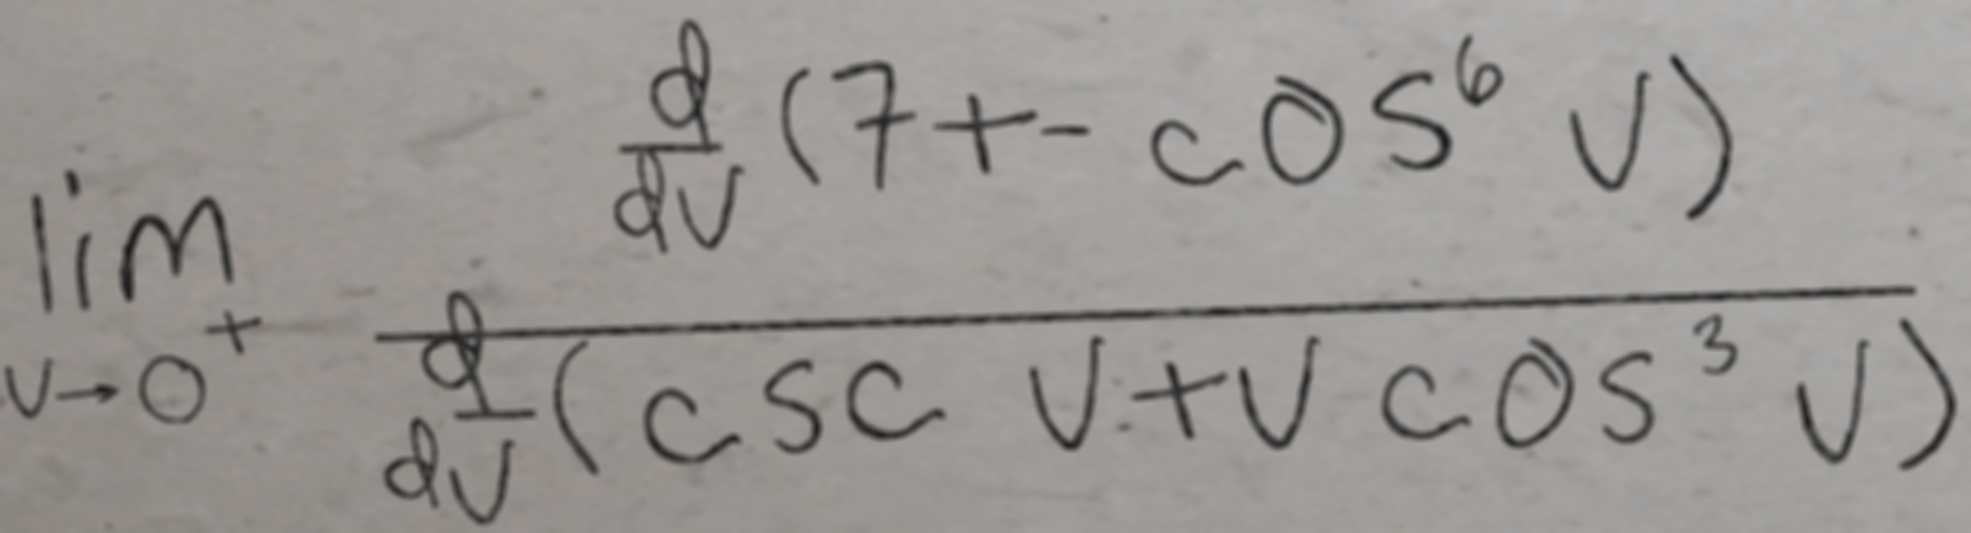 \lim_{v \to 0^+} \frac{\frac{d}{dv}(7+-\cos^6 v)}{\frac{d}{dv}(\csc v+v \cos^3 v)}